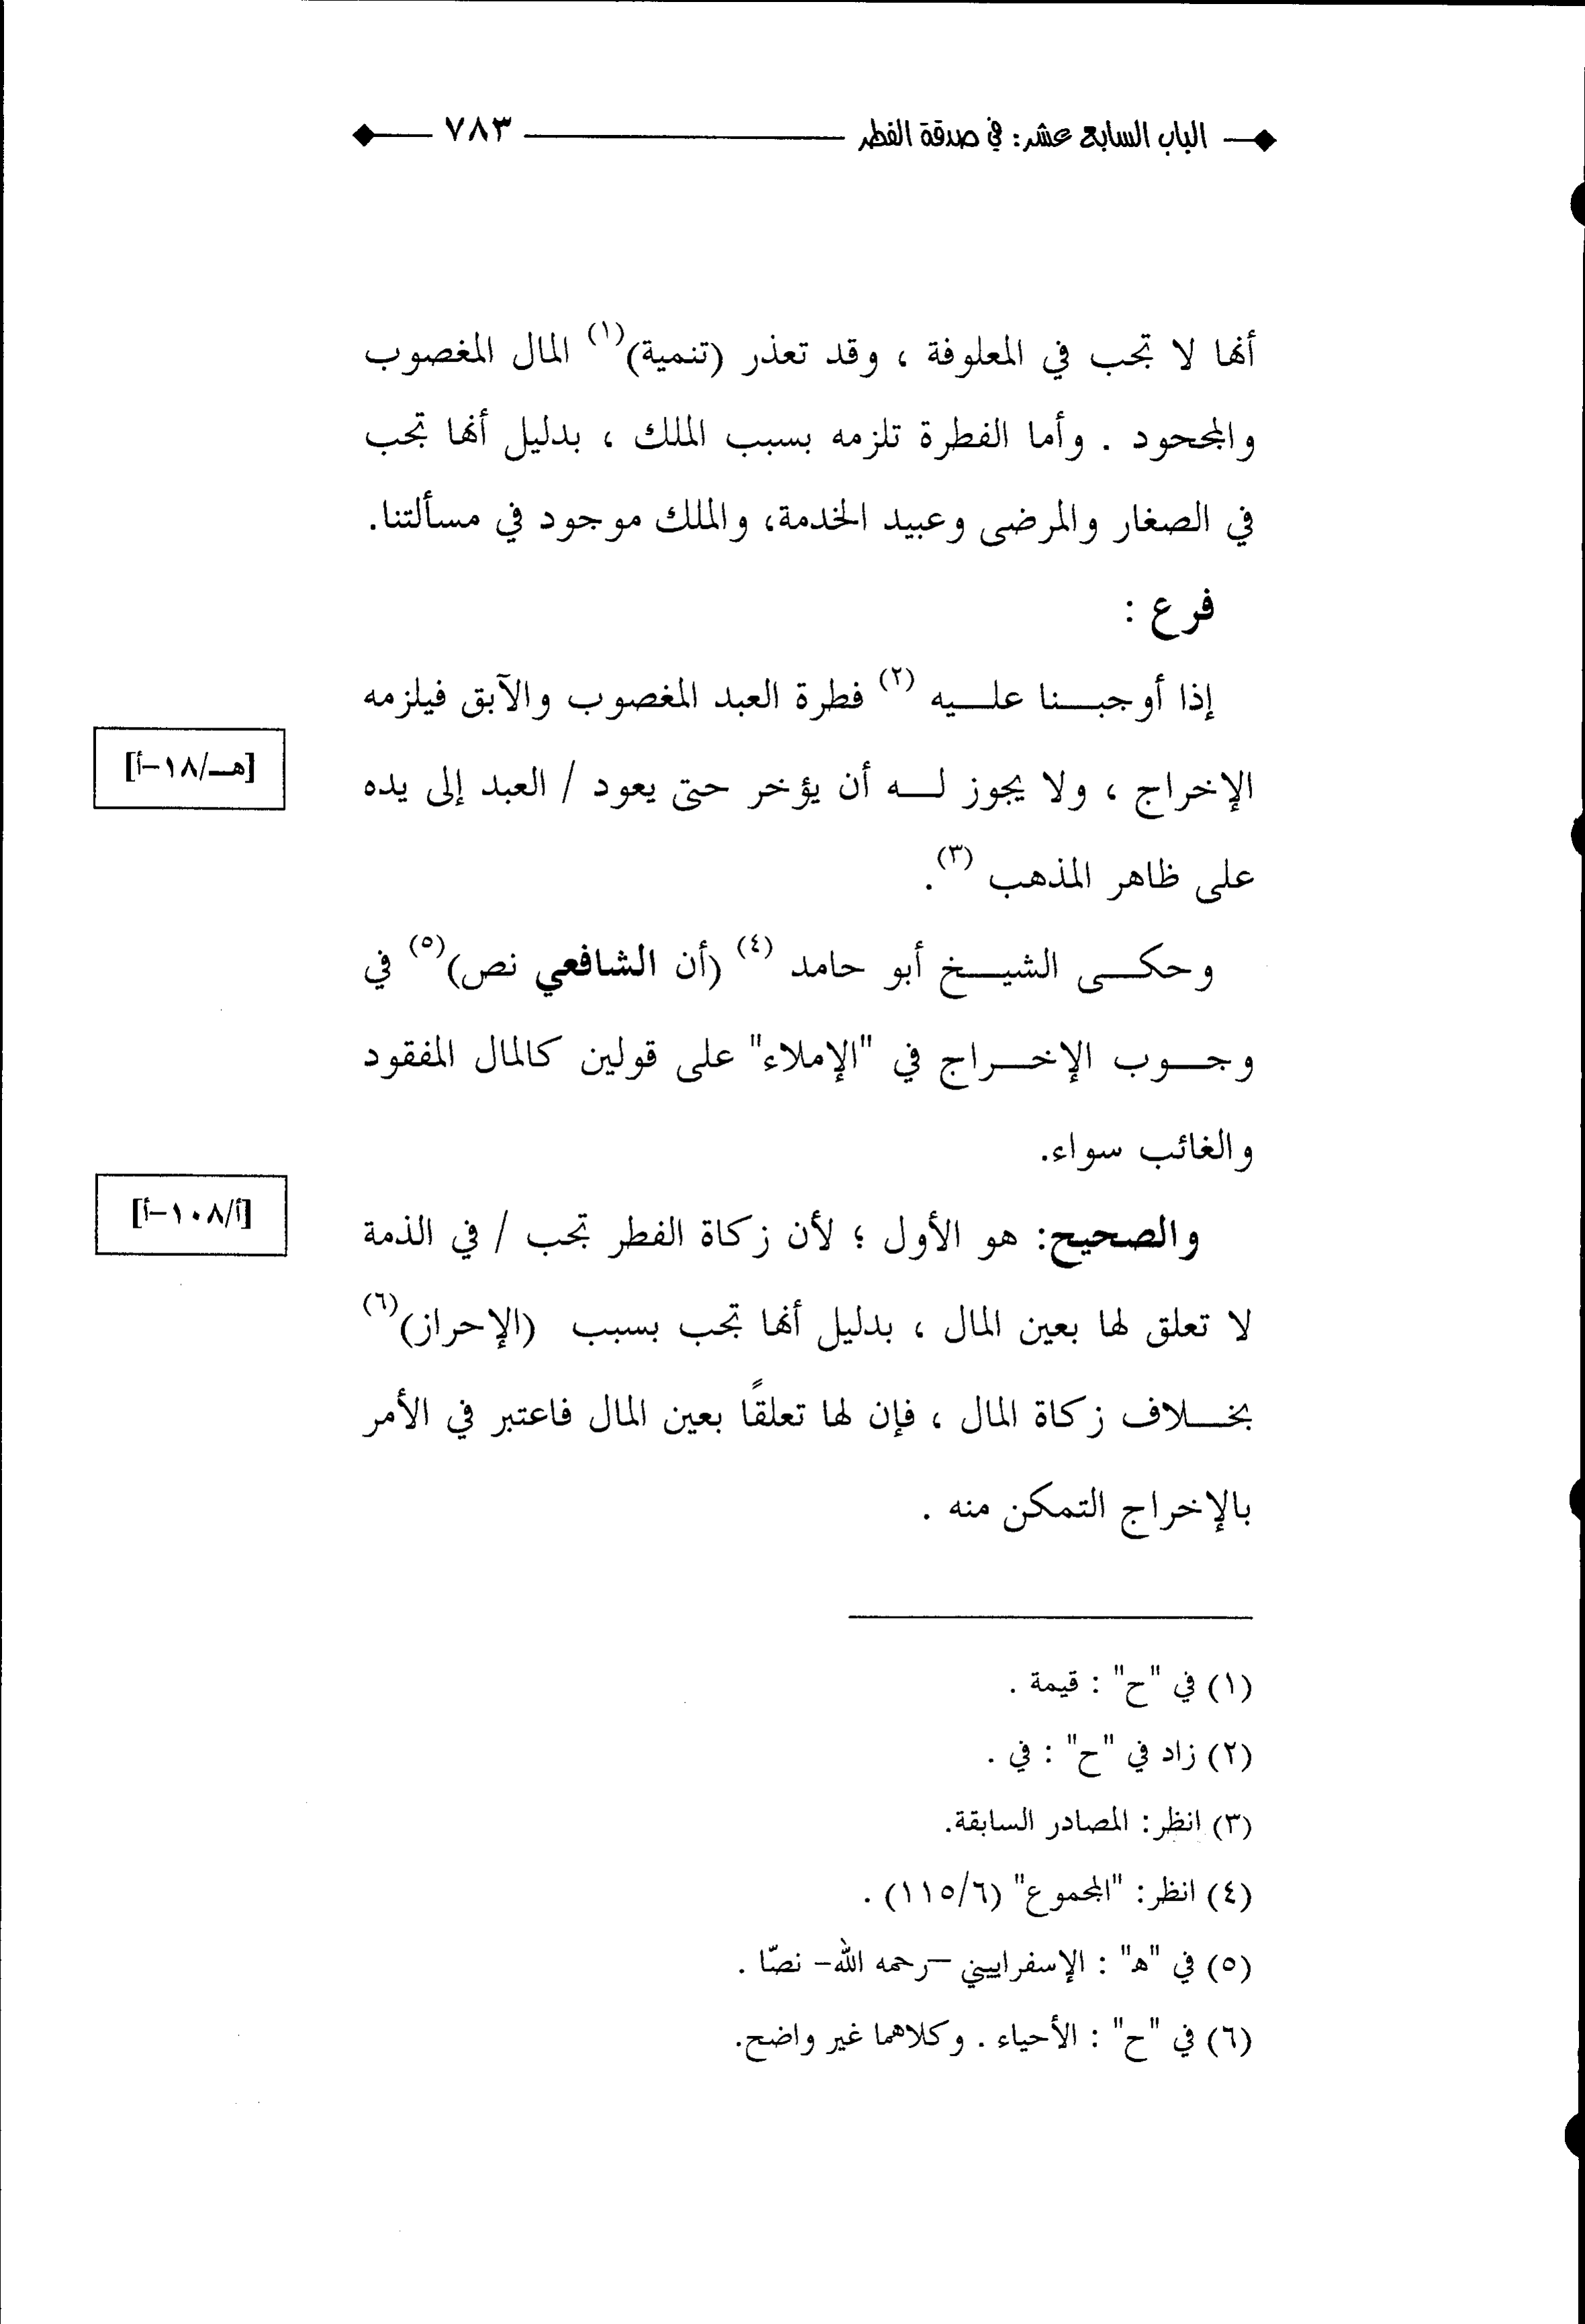 الباب السابع عشر: في صدقة الفطر ٧٨٣
أنها لا تجب في المعلوفة ، وقد تعذر (تنمية)(١) المال المغصوب
والمجحود . وأما الفطرة تلزمه بسبب الملك ، بدليل أنها تجب
في الصغار والمرضى وعبيد الخدمة، والملك موجود في مسألتنا.
فرع :
إذا أوجبـــنا علـــيه (٢) فطرة العبد المغصوب والآبق فيلزمه
[هـ/١٨-أ]
الإخراج ، ولا يجوز لـــه أن يؤخر حتى يعود / العبد إلى يده
على ظاهر المذهب (٣).
وحكـــى الشيـــخ أبو حامد (٤) (أن الشافعي نص)(٥) في
وجـــوب الإخـــراج في "الإملاء" على قولين كالمال المفقود
والغائب سواء.
[أ/١٠٨-أ]
والصحيح: هو الأول ؛ لأن زكاة الفطر تجب / في الذمة
لا تعلق لها بعين المال ، بدليل أنها تجب بسبب (الإحراز)(٦)
بخـــلاف زكاة المال ، فإن لها تعلقًا بعين المال فاعتبر في الأمر
بالإخراج التمكن منه .
(١) في "ح" : قيمة .
(٢) زاد في "ح" : في .
(٣) انظر: المصادر السابقة.
(٤) انظر: "المجموع" (١١٥/٦) .
(٥) في "ه" : الإسفراييني –رحمه الله– نصّا .
(٦) في "ح" : الأحياء . وكلاهما غير واضح.